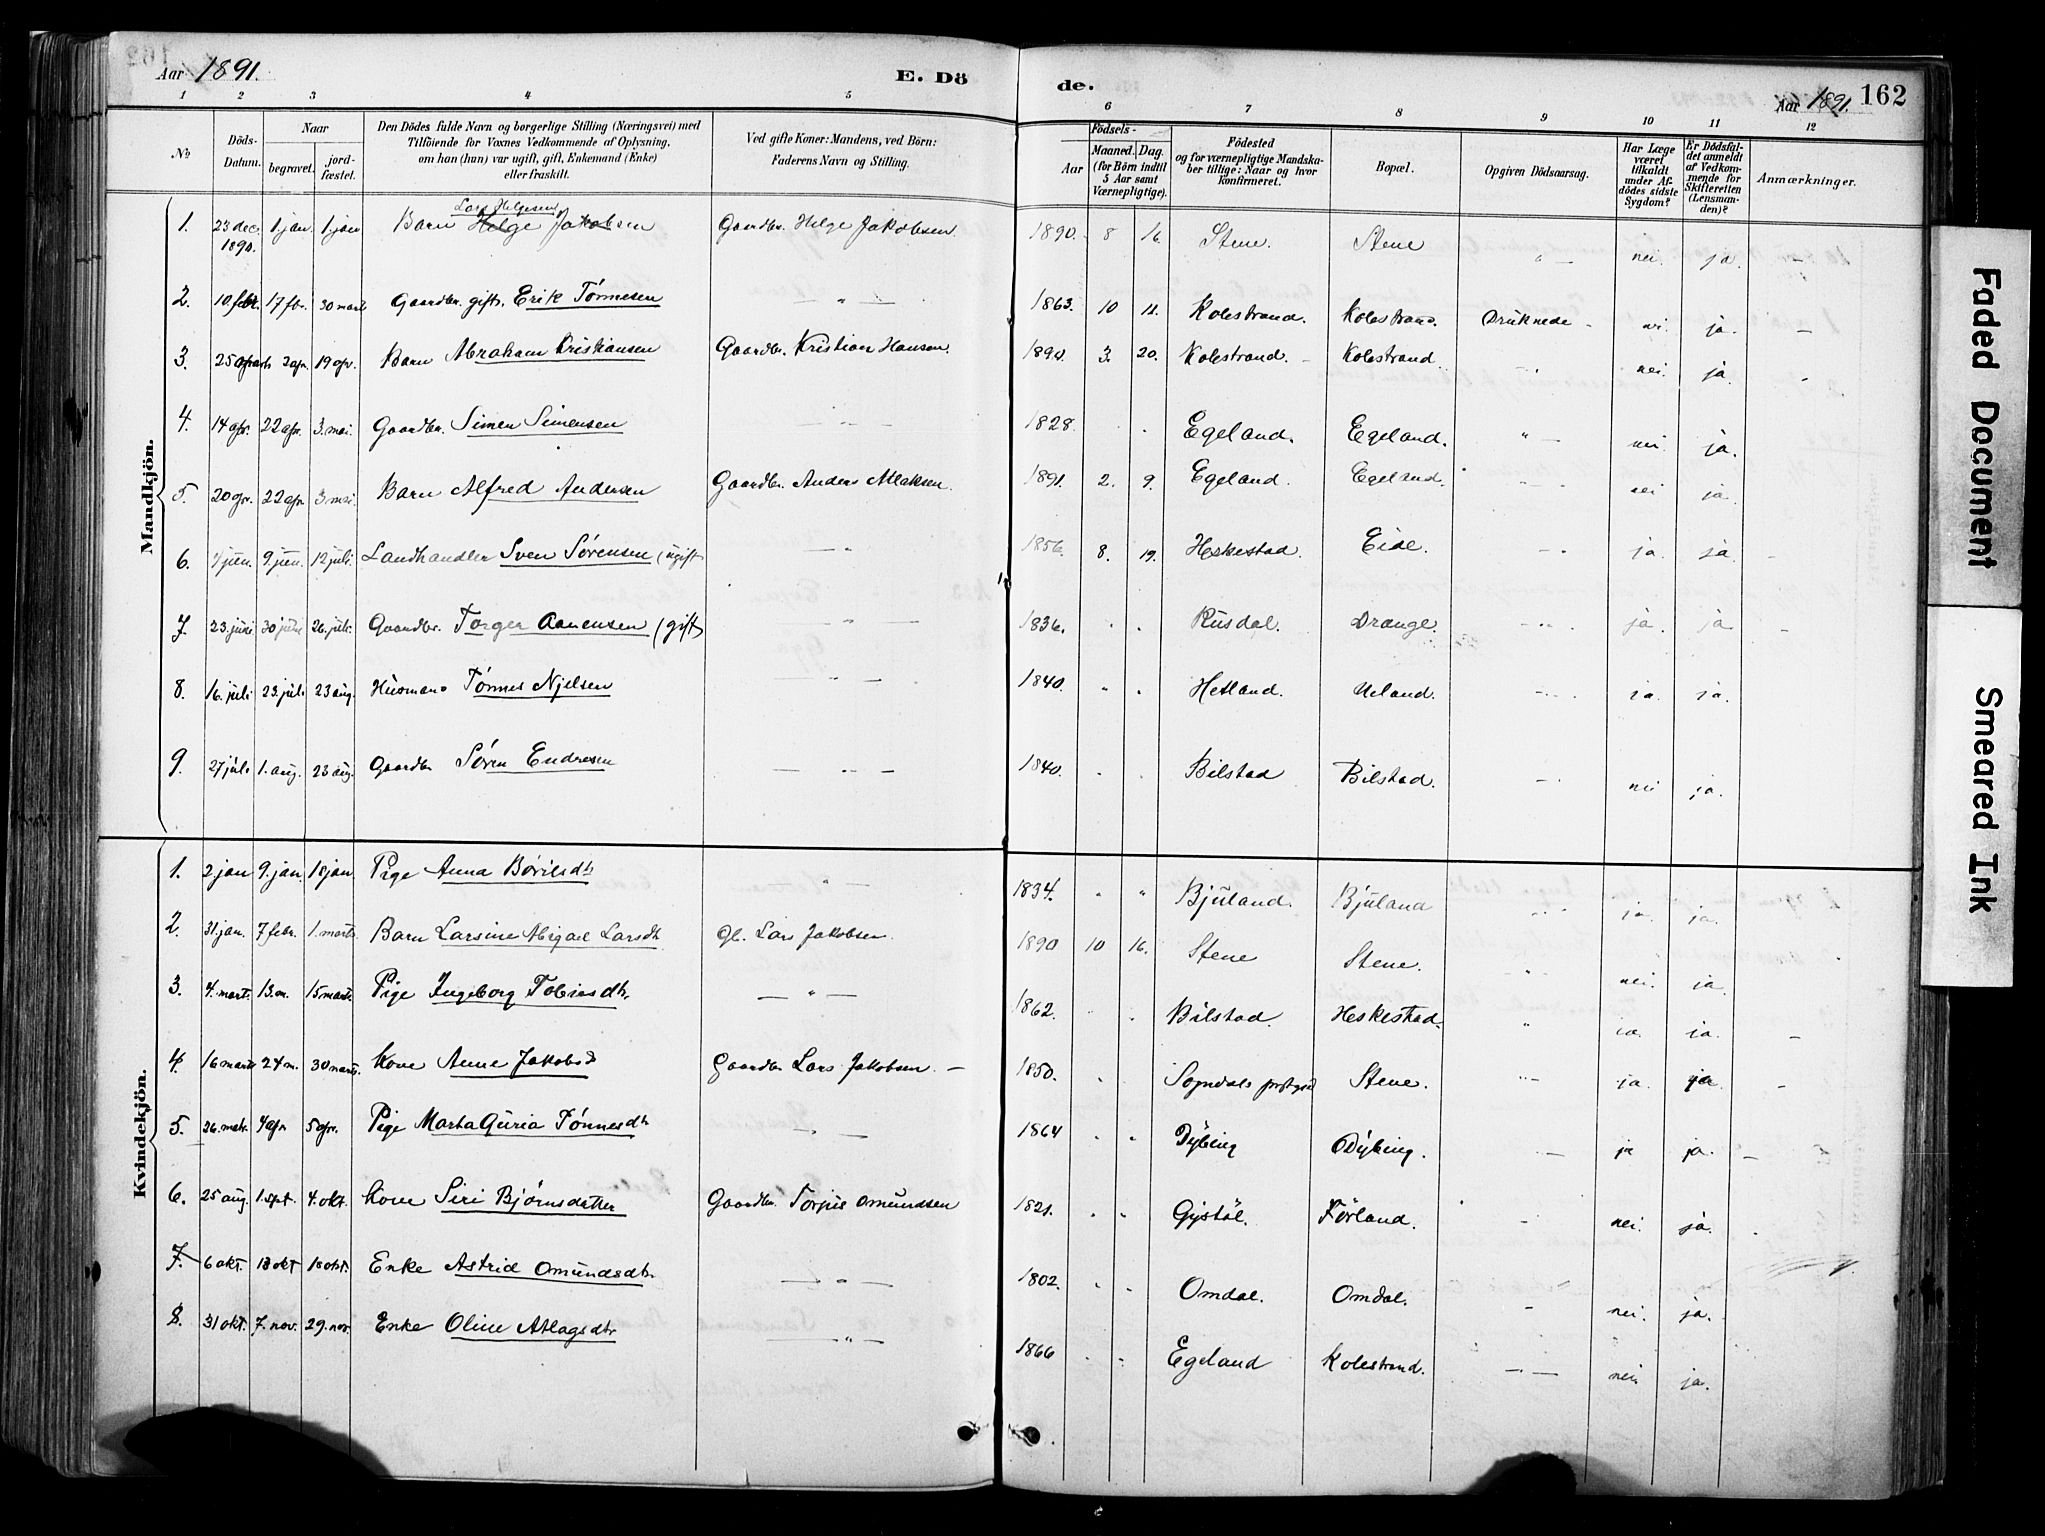 Aar 1891. E. Dö
de. Aar 1891. 162
1 2 3 4 5
6 7 8 9 10 11 12
No Döds-Datum. Naar begravet. jordfæstet. Den Dödes fulde Navn og borgerlige Stilling (Næringsvei) med Tilföiende for Voxnes Vedkommende af Oplysning, om han (hun) var ugift, gift, Enkemand (Enke) eller fraskilt. Ved gifte Koner: Mandens, ved Börn: Faderens Navn og Stilling.
Födsels- Aar Maaned. Dag. (for Börn indtil 5 Aar samt Værnepligtige). Födested og for værnepligtige Mandskaber tillige: Naar og hvor konfirmeret. Bopæl. Opgiven Dödsaarsag. Har Læge været tilkaldt under Afdödes sidste Sygdom? Er Dödsfaldet anmeldt af Vedkommende for Skifteretten (Lensmanden)? Anmærkninger.
Mandkjön.
Lars Helgesen
1. 23 dec. 1890. 1. jan. 1. jan Barn Helge Jakobsen Gaardbr. Helge Jakobsen. 1890. 8 16. Stene. Stene " — nei. ja. —
2. 10. febr. 17 fbr. 30 marts Gaardbr. gift. Erik Tönnesen — " — 1863. 10 11. Kolestrand. Kolestrand. Druknede - nei ja. —
3. 25 marts 2 apr. 19 apr. Barn Abraham Kristiansen Gaardbr. Kristian Hansen. 1890. 3. 20. Kolestrand. - Kolestrand. nei. ja.
4. 14 apr. 22 apr. 3. mai. Gaardbr. Simen Simensen — " — 1828. Egeland. Egeland. " — nei ja.
5. 20 apr. 22 apr 3. mai. Barn Alfred Andersen Gaardbr. Anders Atlaksen. 1891. 2. 9. Egeland. Egeland. nei ja.
6. 1 juni. 9. juni. 12 juli. Landhandler Sven Sörensen (ugift) — " 1856. 8. 19. Heskestad. Eide. ja ja
7. 23. juni 30 juni 26. juli. Gaardbr. Torger Aanensen (gift) — " — 1836. Rusdal. Drange. ja. ja
8. 16. juli 23. juli 23 aug. Husmand Tönnes Njelsen — " — 1840. Hetland. Ueland. ja. ja.
9. 27 juli 1. aug. 23 aug. Gaardbr Sören Endresen — " — 1840. Bilstad Bilstad. nei ja.
Kvindekjön.
1. 2. jan 9. jan. 18 jan Pige Anna Börilsdt. — " — 1834. " " Bjuland. Bjuland ja. ja.
2. 31 jan. 7 febr. 1. marts Barn Larsine Abigael Larsdt. Gb. Lars Jakobsen. 1890 10 16. Stene Stene. nei. ja.
3. 4. mart. 13. m. 15 marts Pige Ingeborg Tobiasdtr. — " — 1862. Bilstad. Heskestad. ja. ja. —
4. 16 marts 24 m. 30 marts. Kone Anne Jakobsd Gaardbr Lars Jakobsen. — 1850. Sogndals prstgjd Stene. ja. ja —
5. 26. mats. 4 apr 5 apr. Pige Marta Guria Tönnesdtr — " — 1864 Dybing Dybing. ja ja. —
6. 25 aug. 1. spt. 4. okt. Kone Siri Björnsdatter Gaardbr. Torjus Omundsen 1821. Gystöl. Förland. nei. ja.
7. 6 okt. 13 okt 18 okt. Enke Astrid Omundsdtr. — " — 1802. Omdal. Omdal. nei. ja.
8. 31 okt. 7. nov. 29. nov. Enke Oline Atlagsdtr — " — 1866 Egeland Kolestrand. nei. ja.
Faded Document
Smeared Ink